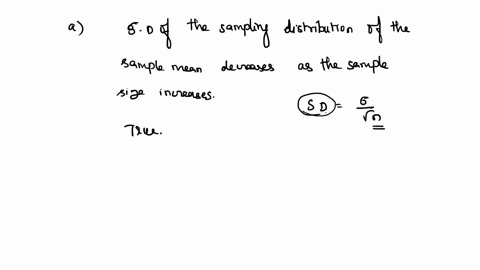 a) S.D of the sampling distribution of the
sample mean decreases as the sample
size increases.
SD = σ/√n
True.